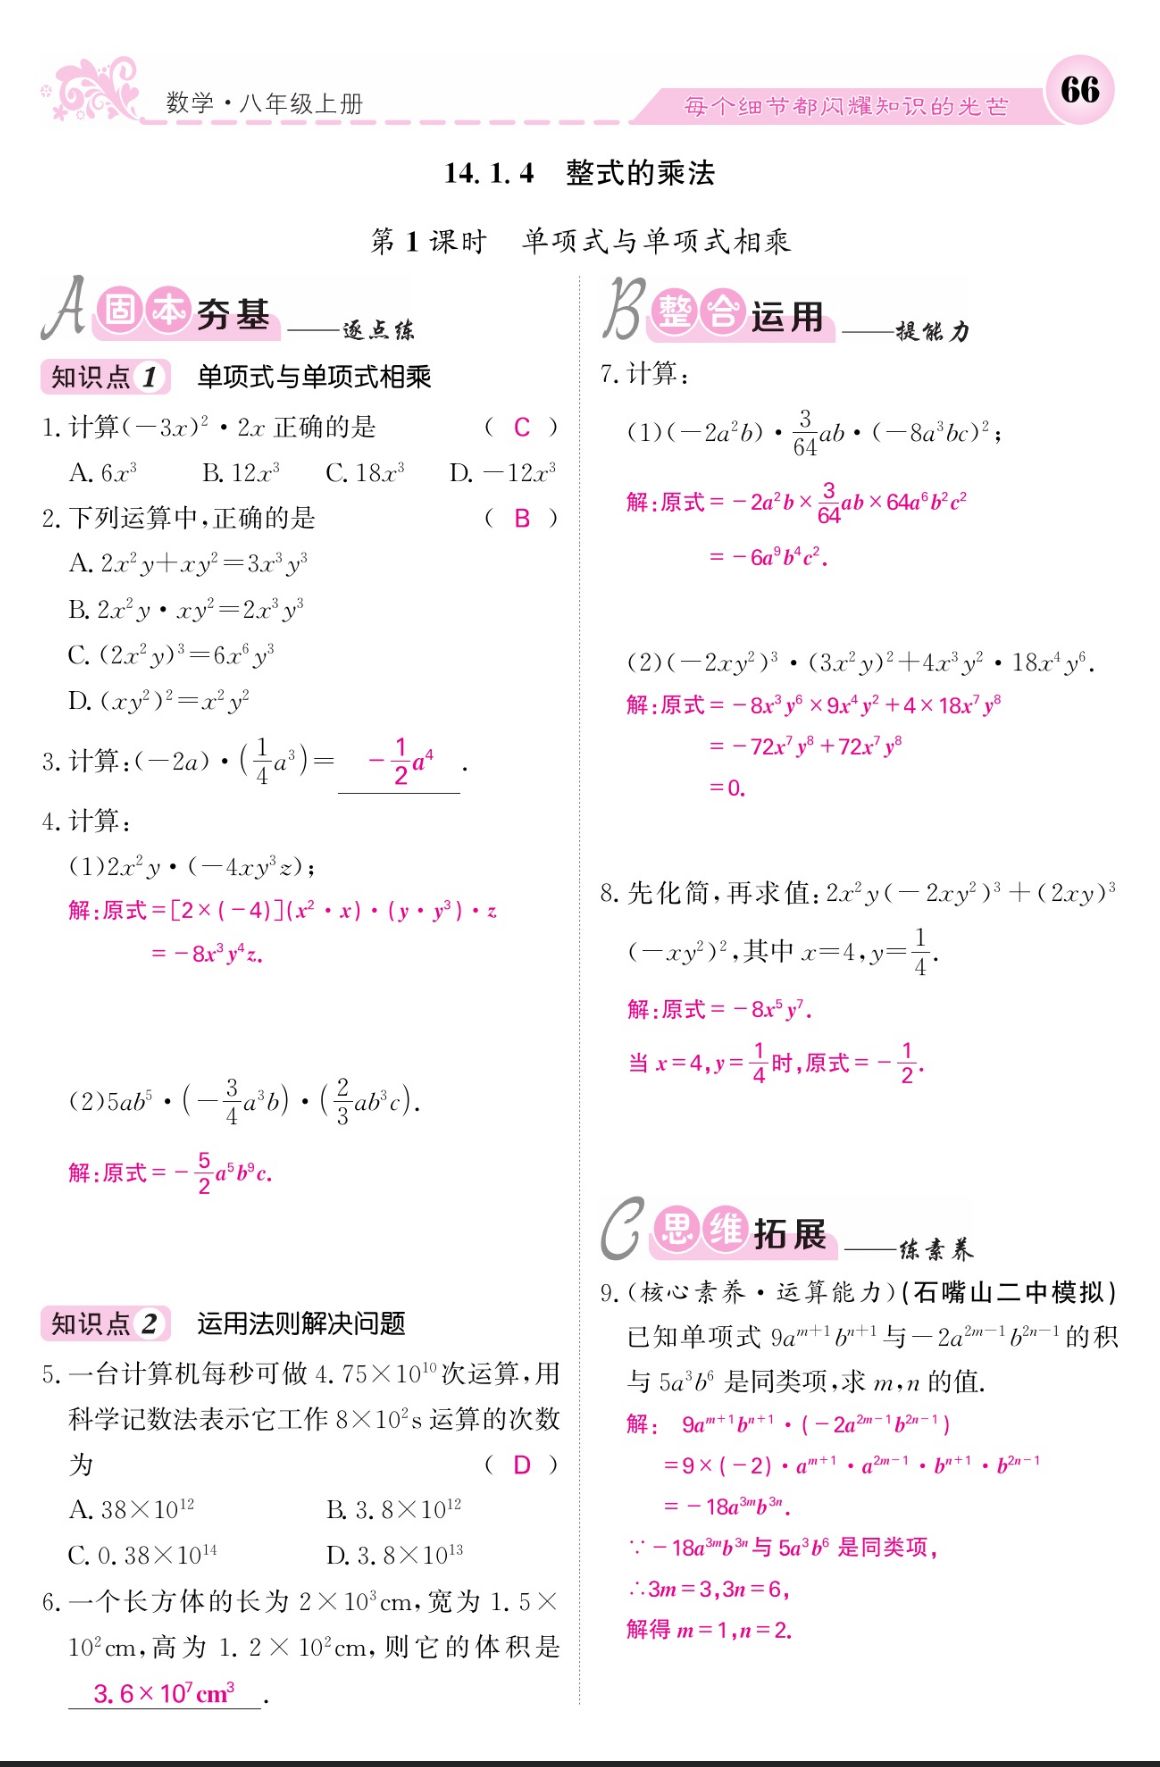 数学·八年级上册
每个细节都闪耀知识的光芒
66
14.1.4 整式的乘法
第1课时 单项式与单项式相乘
A 固本夯基 ——逐点练
知识点1 单项式与单项式相乘
1.计算(-3x)²·2x 正确的是 ( C )
A.6x³ B.12x³ C.18x³ D.-12x³
2.下列运算中,正确的是 ( B )
A.2x²y+xy²=3x³y³
B.2x²y·xy²=2x³y³
C.(2x²y)³=6x⁶y³
D.(xy²)²=x²y²
3.计算:(-2a)·(1/4 a³)= -1/2 a⁴ .
4.计算:
(1)2x²y·(-4xy³z);
解:原式=[2×(-4)](x²·x)·(y·y³)·z
=-8x³y⁴z.
(2)5ab⁵·(-3/4 a³b)·(2/3 ab³c).
解:原式=-5/2 a⁵b⁹c.
知识点2 运用法则解决问题
5.一台计算机每秒可做 4.75×10¹⁰次运算,用
科学记数法表示它工作 8×10²s 运算的次数
为 ( D )
A.38×10¹² B.3.8×10¹²
C.0.38×10¹⁴ D.3.8×10¹³
6.一个长方体的长为 2×10³cm,宽为 1.5×
10²cm,高为 1.2×10²cm,则它的体积是
3.6×10⁷cm³ .
B 整合运用 ——提能力
7.计算:
(1)(-2a²b)·3/64 ab·(-8a³bc)²;
解:原式=-2a²b×3/64 ab×64a⁶b²c²
=-6a⁹b⁴c².
(2)(-2xy²)³·(3x²y)²+4x³y²·18x⁴y⁶.
解:原式=-8x³y⁶×9x⁴y²+4×18x⁷y⁸
=-72x⁷y⁸+72x⁷y⁸
=0.
8.先化简,再求值:2x²y(-2xy²)³+(2xy)³
(-xy²)²,其中 x=4,y=1/4.
解:原式=-8x⁵y⁷.
当 x=4,y=1/4时,原式=-1/2.
C 思维拓展 ——练素养
9.(核心素养·运算能力)(石嘴山二中模拟)
已知单项式 9aᵐ⁺¹bⁿ⁺¹与-2a²ᵐ⁻¹b²ⁿ⁻¹的积
与 5a³b⁶ 是同类项,求 m,n 的值.
解: 9aᵐ⁺¹bⁿ⁺¹·(-2a²ᵐ⁻¹b²ⁿ⁻¹)
=9×(-2)·aᵐ⁺¹·a²ᵐ⁻¹·bⁿ⁺¹·b²ⁿ⁻¹
=-18a³ᵐb³ⁿ.
∵-18a³ᵐb³ⁿ与 5a³b⁶ 是同类项,
∴3m=3,3n=6,
解得 m=1,n=2.